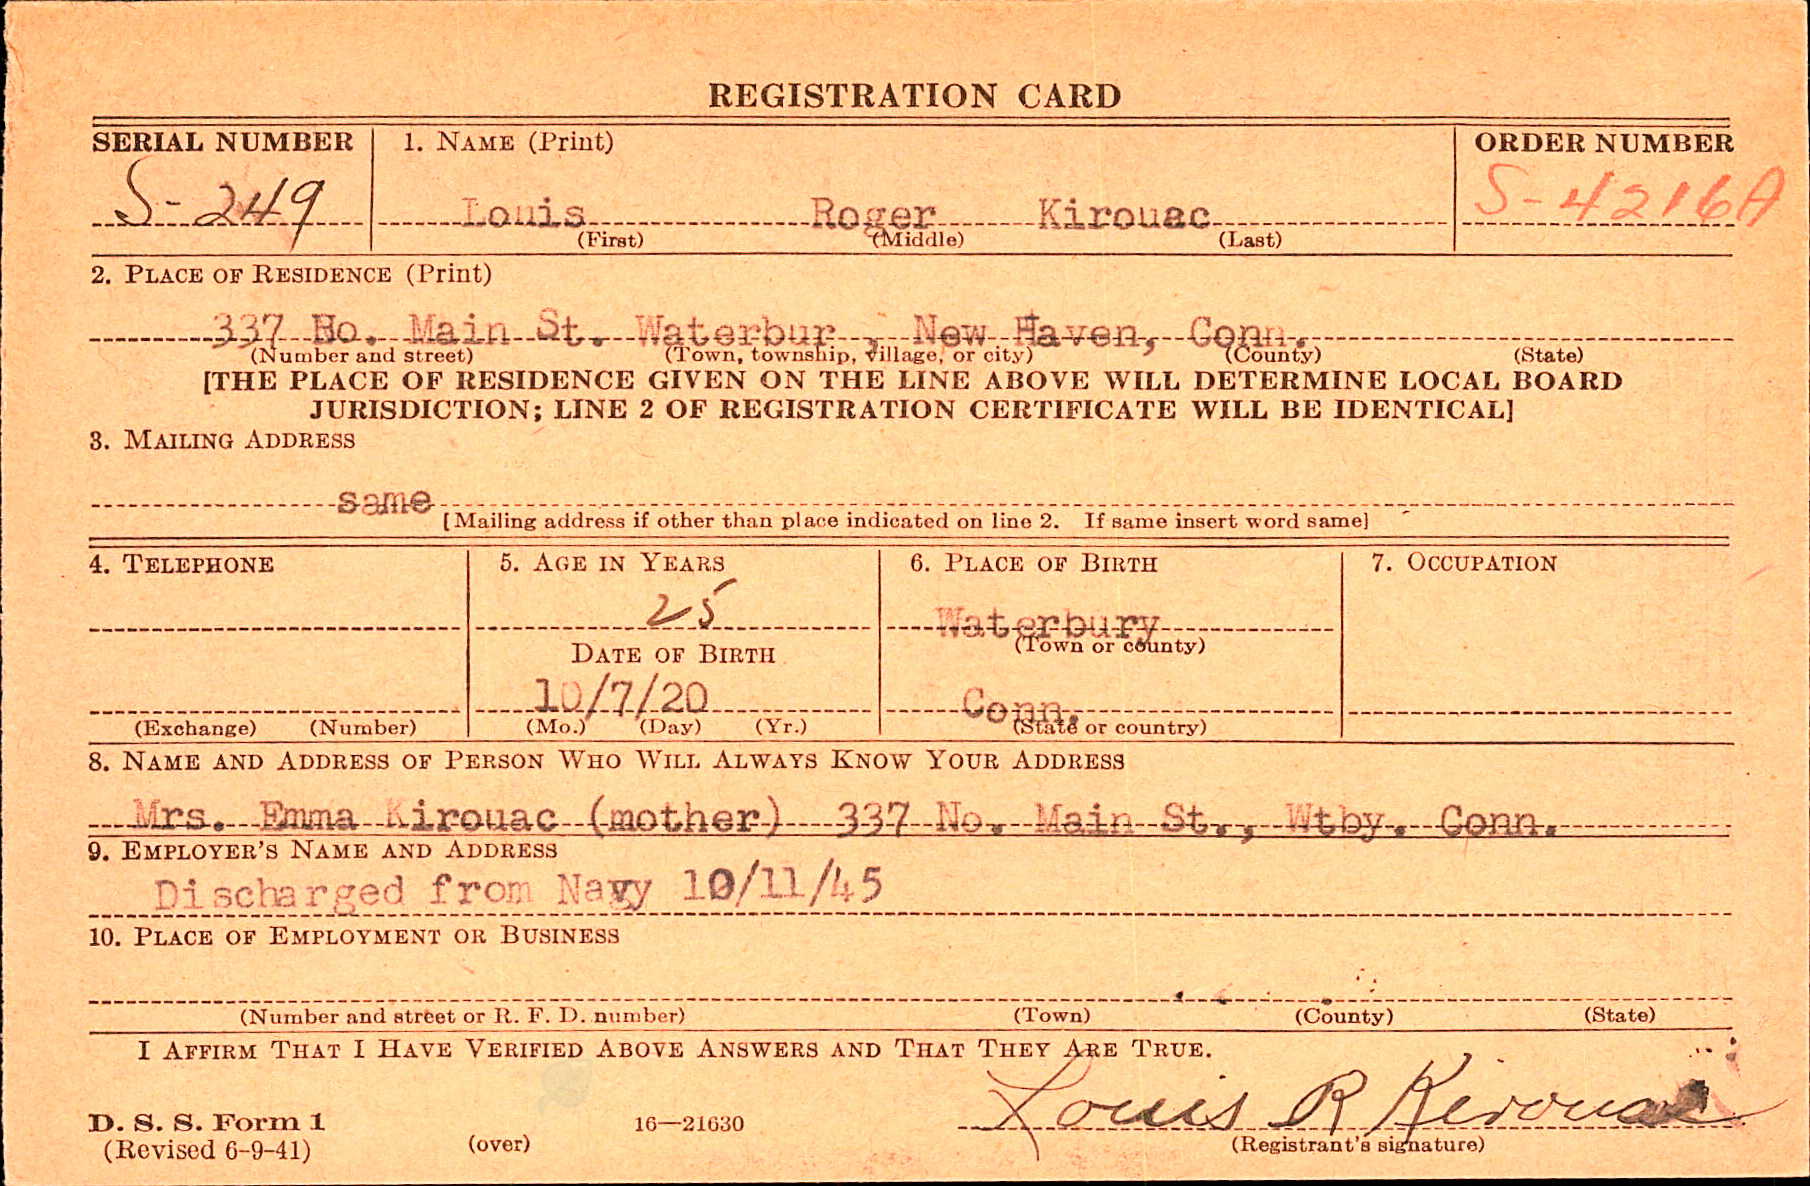 REGISTRATION CARD
SERIAL NUMBER 1. NAME (Print) ORDER NUMBER
S-249 Louis Roger Kirouac S-4216A
(First) (Middle) (Last)
2. PLACE OF RESIDENCE (Print)
337 Ho. Main St. Waterbur , New Haven, Conn.
(Number and street) (Town, township, village, or city) (County) (State)
[THE PLACE OF RESIDENCE GIVEN ON THE LINE ABOVE WILL DETERMINE LOCAL BOARD
JURISDICTION; LINE 2 OF REGISTRATION CERTIFICATE WILL BE IDENTICAL]
3. MAILING ADDRESS
same
[Mailing address if other than place indicated on line 2. If same insert word same]
4. TELEPHONE 5. AGE IN YEARS 6. PLACE OF BIRTH 7. OCCUPATION
25 Waterbury
(Town or county)
DATE OF BIRTH
10/7/20 Conn.
(Exchange) (Number) (Mo.) (Day) (Yr.) (State or country)
8. NAME AND ADDRESS OF PERSON WHO WILL ALWAYS KNOW YOUR ADDRESS
Mrs. Emma Kirouac (mother) 337 No. Main St., Wtby. Conn.
9. EMPLOYER'S NAME AND ADDRESS
Discharged from Navy 10/11/45
10. PLACE OF EMPLOYMENT OR BUSINESS
(Number and street or R. F. D. number) (Town) (County) (State)
I AFFIRM THAT I HAVE VERIFIED ABOVE ANSWERS AND THAT THEY ARE TRUE.
Louis R Kirouac
D. S. S. Form 1 16—21630
(Revised 6-9-41) (over) (Registrant's signature)